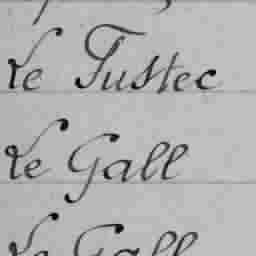 Le Justec
Le Gall
Le Gall